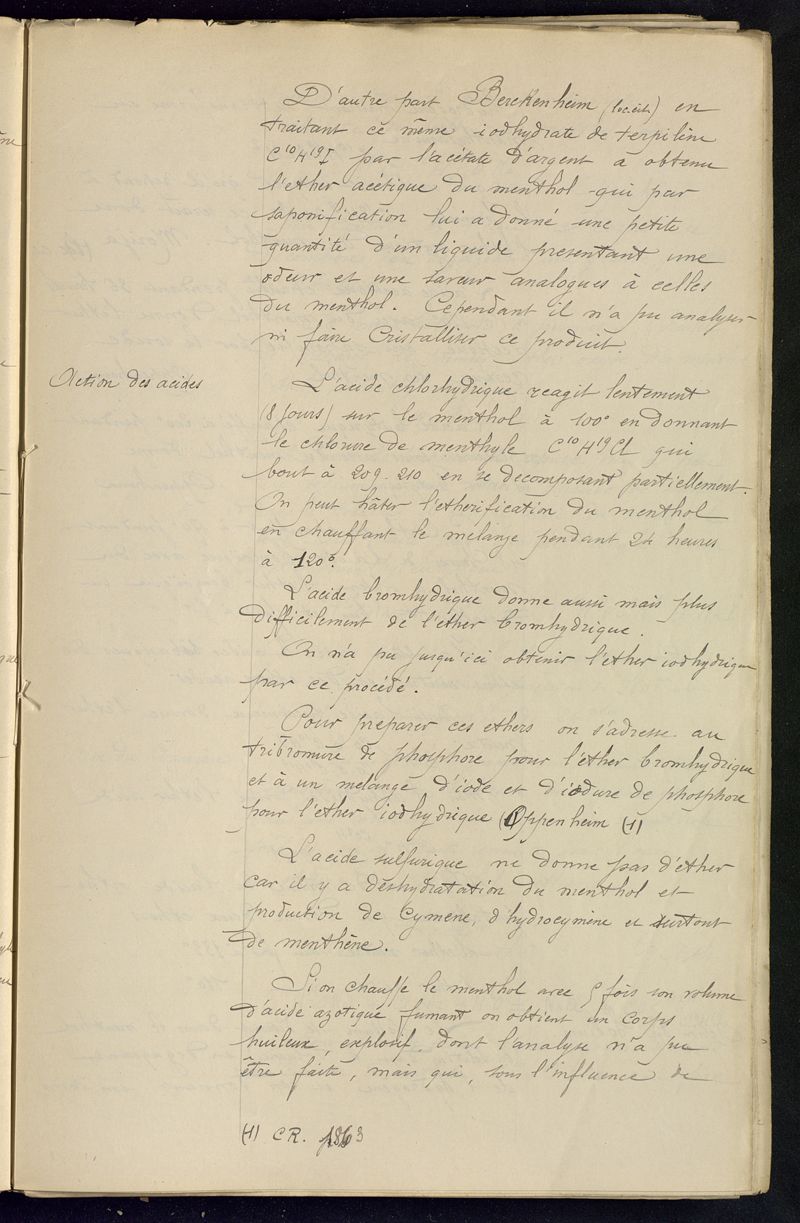 D'autre part Berckenheim (loc.cit) en
traitant ce même iodhydrate de terpilène
C¹⁰H¹⁹I par l'acétate d'argent a obtenu
l'ether acétique du menthol qui par
saponification lui a donné une petite
quantité d'un liquide presentant une
odeur et une saveur analogues à celles
du menthol. Cependant il n'a pu analyser
ni faire cristalliser ce produit.
Action des acides
L'acide chlorhydrique reagit lentement
(8 jours) sur le menthol à 100° en donnant
le chlorure de menthyle C¹⁰H¹⁹Cl qui
bout à 209-210 en se decomposant partiellement.
On peut hâter l'etherification du menthol
en chauffant le mélange pendant 24 heures
à 120°.
L'acide bromhydrique donne aussi mais plus
difficilement de l'éther bromhydrique.
On n'a pu jusqu'ici obtenir l'éther iodhydrique
par ce procédé.
Pour preparer ces ethers on s'adresse au
tribromure de phosphore pour l'éther bromhydrique
et à un melange d'iode et d'iodure de phosphore
pour l'éther iodhydrique (Oppenheim (1)
L'acide sulfurique ne donne pas d'éther
car il y a déshydratation du menthol et
production de cymène, d'hydrocymène et surtout
de menthène.
Si on chauffe le menthol avec 5 fois son volume
d'acide azotique fumant on obtient un corps
huileux, explosif, dont l'analyse n'a pu
être faite, mais qui, sous l'influence de
(1) CR. 1863